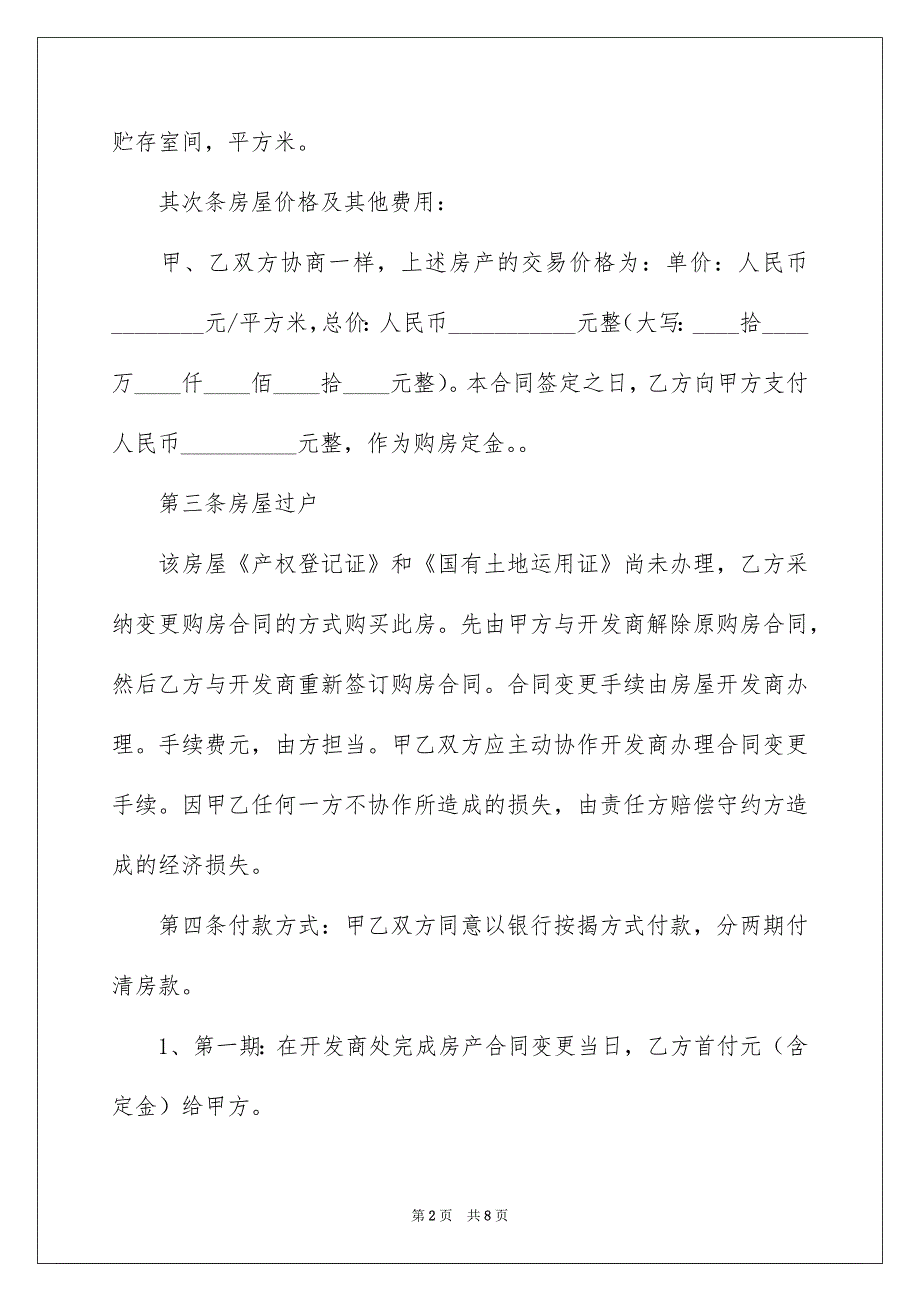 贮存室间，平方米。
其次条房屋价格及其他费用：
甲、乙双方协商一样，上述房产的交易价格为：单价：人民币
________元/平方米，总价：人民币___________元整（大写：____拾____
万____仟____佰____拾____元整）。本合同签定之日，乙方向甲方支付
人民币__________元整，作为购房定金。。
第三条房屋过户
该房屋《产权登记证》和《国有土地运用证》尚未办理，乙方采
纳变更购房合同的方式购买此房。先由甲方与开发商解除原购房合同，
然后乙方与开发商重新签订购房合同。合同变更手续由房屋开发商办
理。手续费元，由方担当。甲乙双方应主动协作开发商办理合同变更
手续。因甲乙任何一方不协作所造成的损失，由责任方赔偿守约方造
成的经济损失。
第四条付款方式：甲乙双方同意以银行按揭方式付款，分两期付
清房款。
1、第一期：在开发商处完成房产合同变更当日，乙方首付元（含
定金）给甲方。
第 2 页 共 8 页